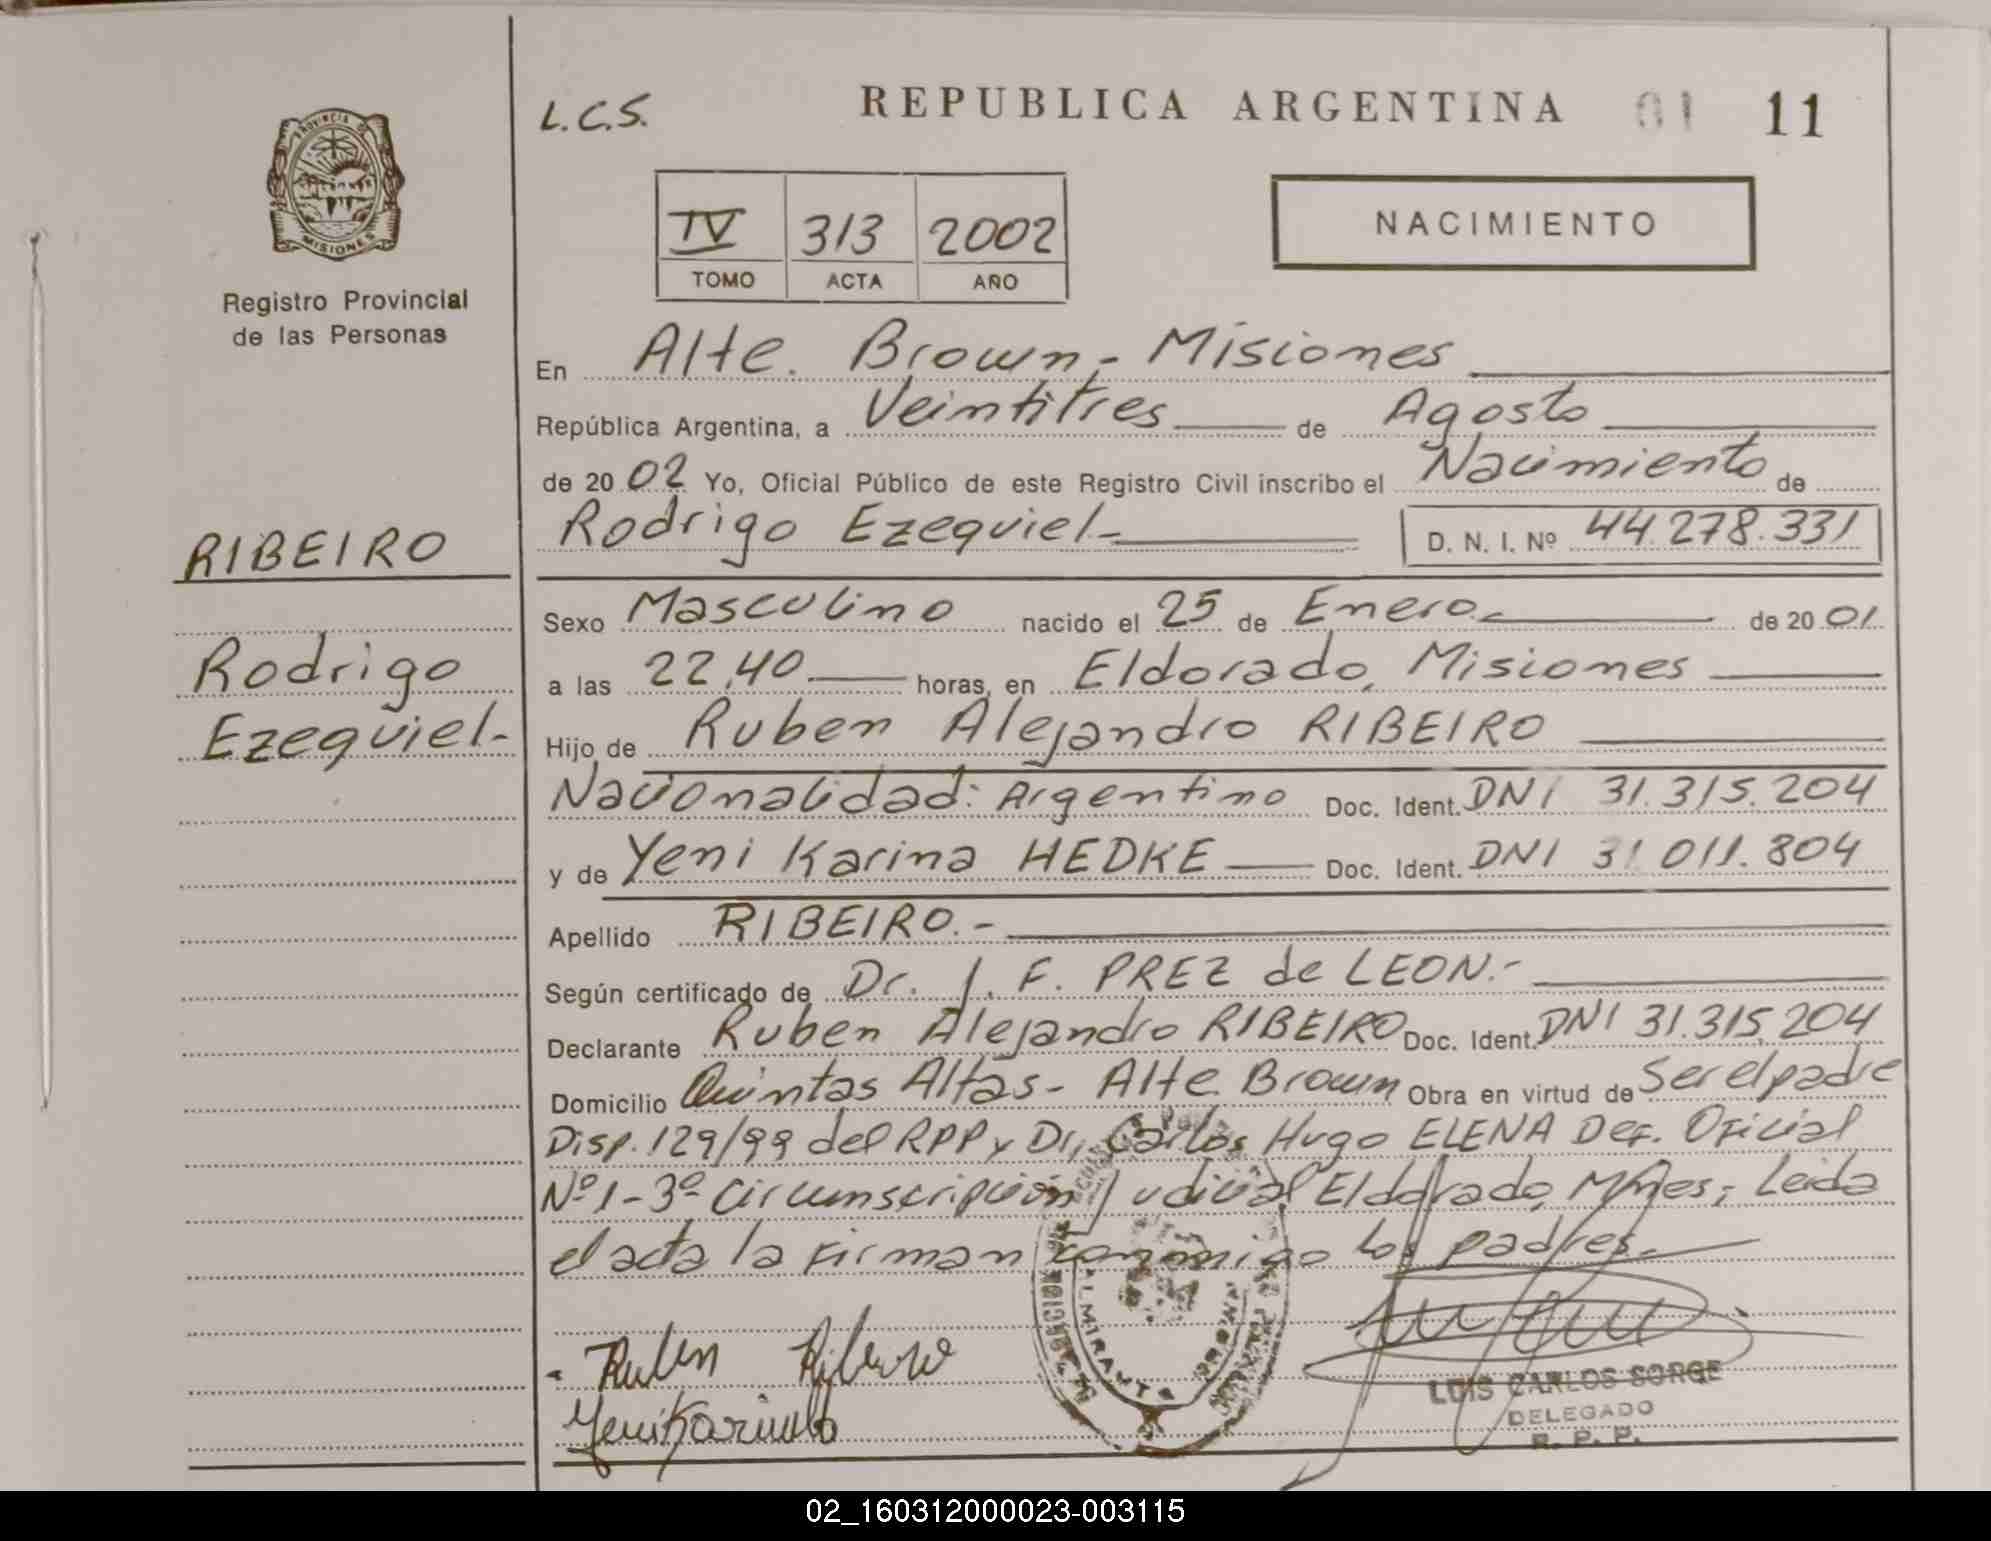 L.C.S.
REPUBLICA ARGENTINA 01 11
PROVINCIA DE
MISIONES
Registro Provincial
de las Personas
IV 313 2002
TOMO ACTA AÑO
NACIMIENTO
En Alte. Brown - Misiones
República Argentina, a Veintitres de Agosto
de 2002 Yo, Oficial Público de este Registro Civil inscribo el Nacimiento de
Rodrigo Ezequiel - D. N. I. Nº 44.278.331
RIBEIRO
Rodrigo
Ezequiel -
Sexo Masculino nacido el 25 de Enero de 2001
a las 22,40 horas, en Eldorado, Misiones
Hijo de Ruben Alejandro RIBEIRO
Nacionalidad: Argentino Doc. Ident. DNI 31.315.204
y de Yeni Karina HEDKE Doc. Ident. DNI 31.011.804
Apellido RIBEIRO.-
Según certificado de Dr. J. F. PREZ de LEON.-
Declarante Ruben Alejandro RIBEIRO Doc. Ident. DNI 31.315.204
Domicilio Quintas Altas - Alte. Brown Obra en virtud de Ser el padre
Disp. 129/99 del RPP y Dr. Carlos Hugo ELENA Def. Oficial
Nº 1 - 3º Circunscripción Judicial Eldorado, Mnes; Leida
el acta la firman conmigo los padres.
Ruben Ribeiro
Yeni Karina
ALMIRANTE BROWN
LUIS CARLOS SORGE
DELEGADO
R. P. P.
02_160312000023-003115